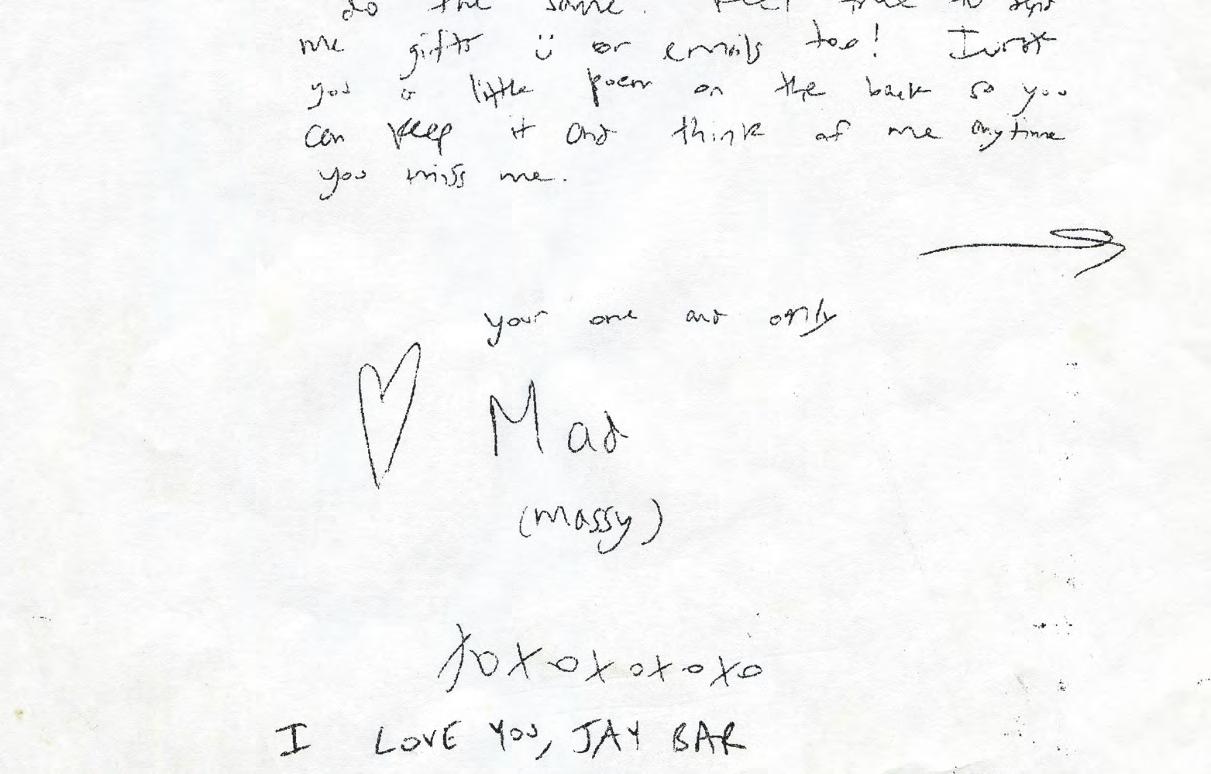 do the same. Feel free to send
me gifts ü or emails too! I wrote
you a little poem on the back so you
can keep it and think of me anytime
you miss me.
your one and only
Mad
(massy)
XOXOXOXOXO
I LOVE YOU, JAY BAR